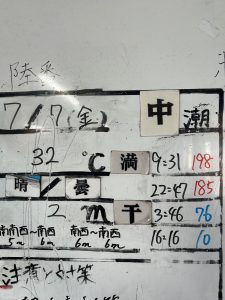 7/7(金) 中 潮
32 ℃ 満 9:31 198
晴/曇 22:47 185
2 m 干 3:46 76
16:16 10
南南西～南西 南西～南西
5m～6m 6m 6m
注意と対策